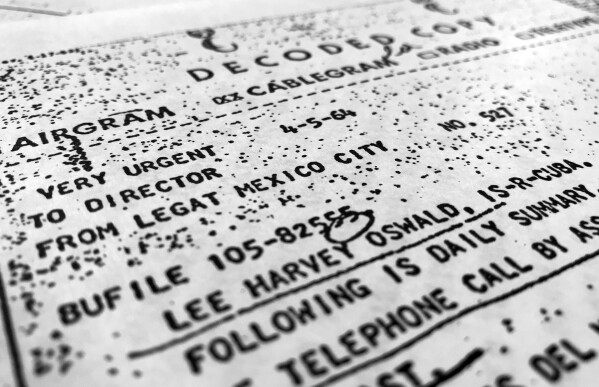 DECODED COPY
AIRGRAM CABLEGRAM RADIO
VERY URGENT 4-5-64 NO. 527
TO DIRECTOR
FROM LEGAT MEXICO CITY
BUFILE 105-82555
LEE HARVEY OSWALD, IS-R-CUBA.
FOLLOWING IS DAILY SUMMARY.
TELEPHONE CALL BY
DEL